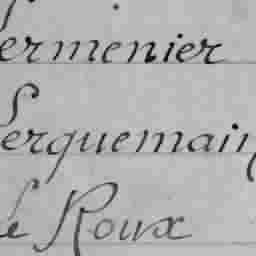 ermenier
erquemain
le Roux